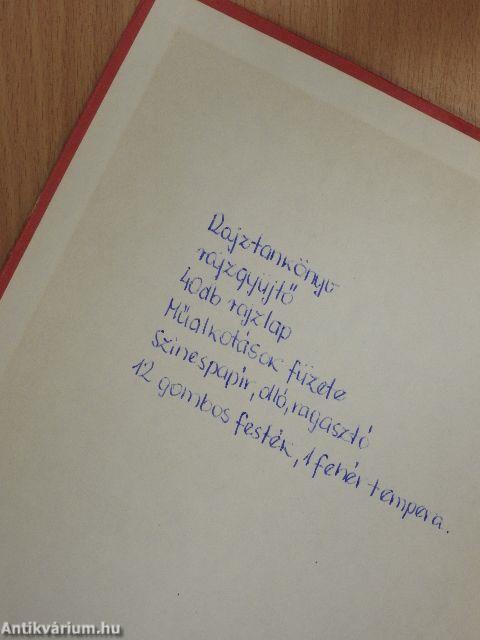 Rajztankönyv
rajzgyűjtő
40db rajzlap
Műalkotások füzete
Színespapír, olló, ragasztó
12 gombos festék, 1 fehér tempera.
Antikvárium.hu